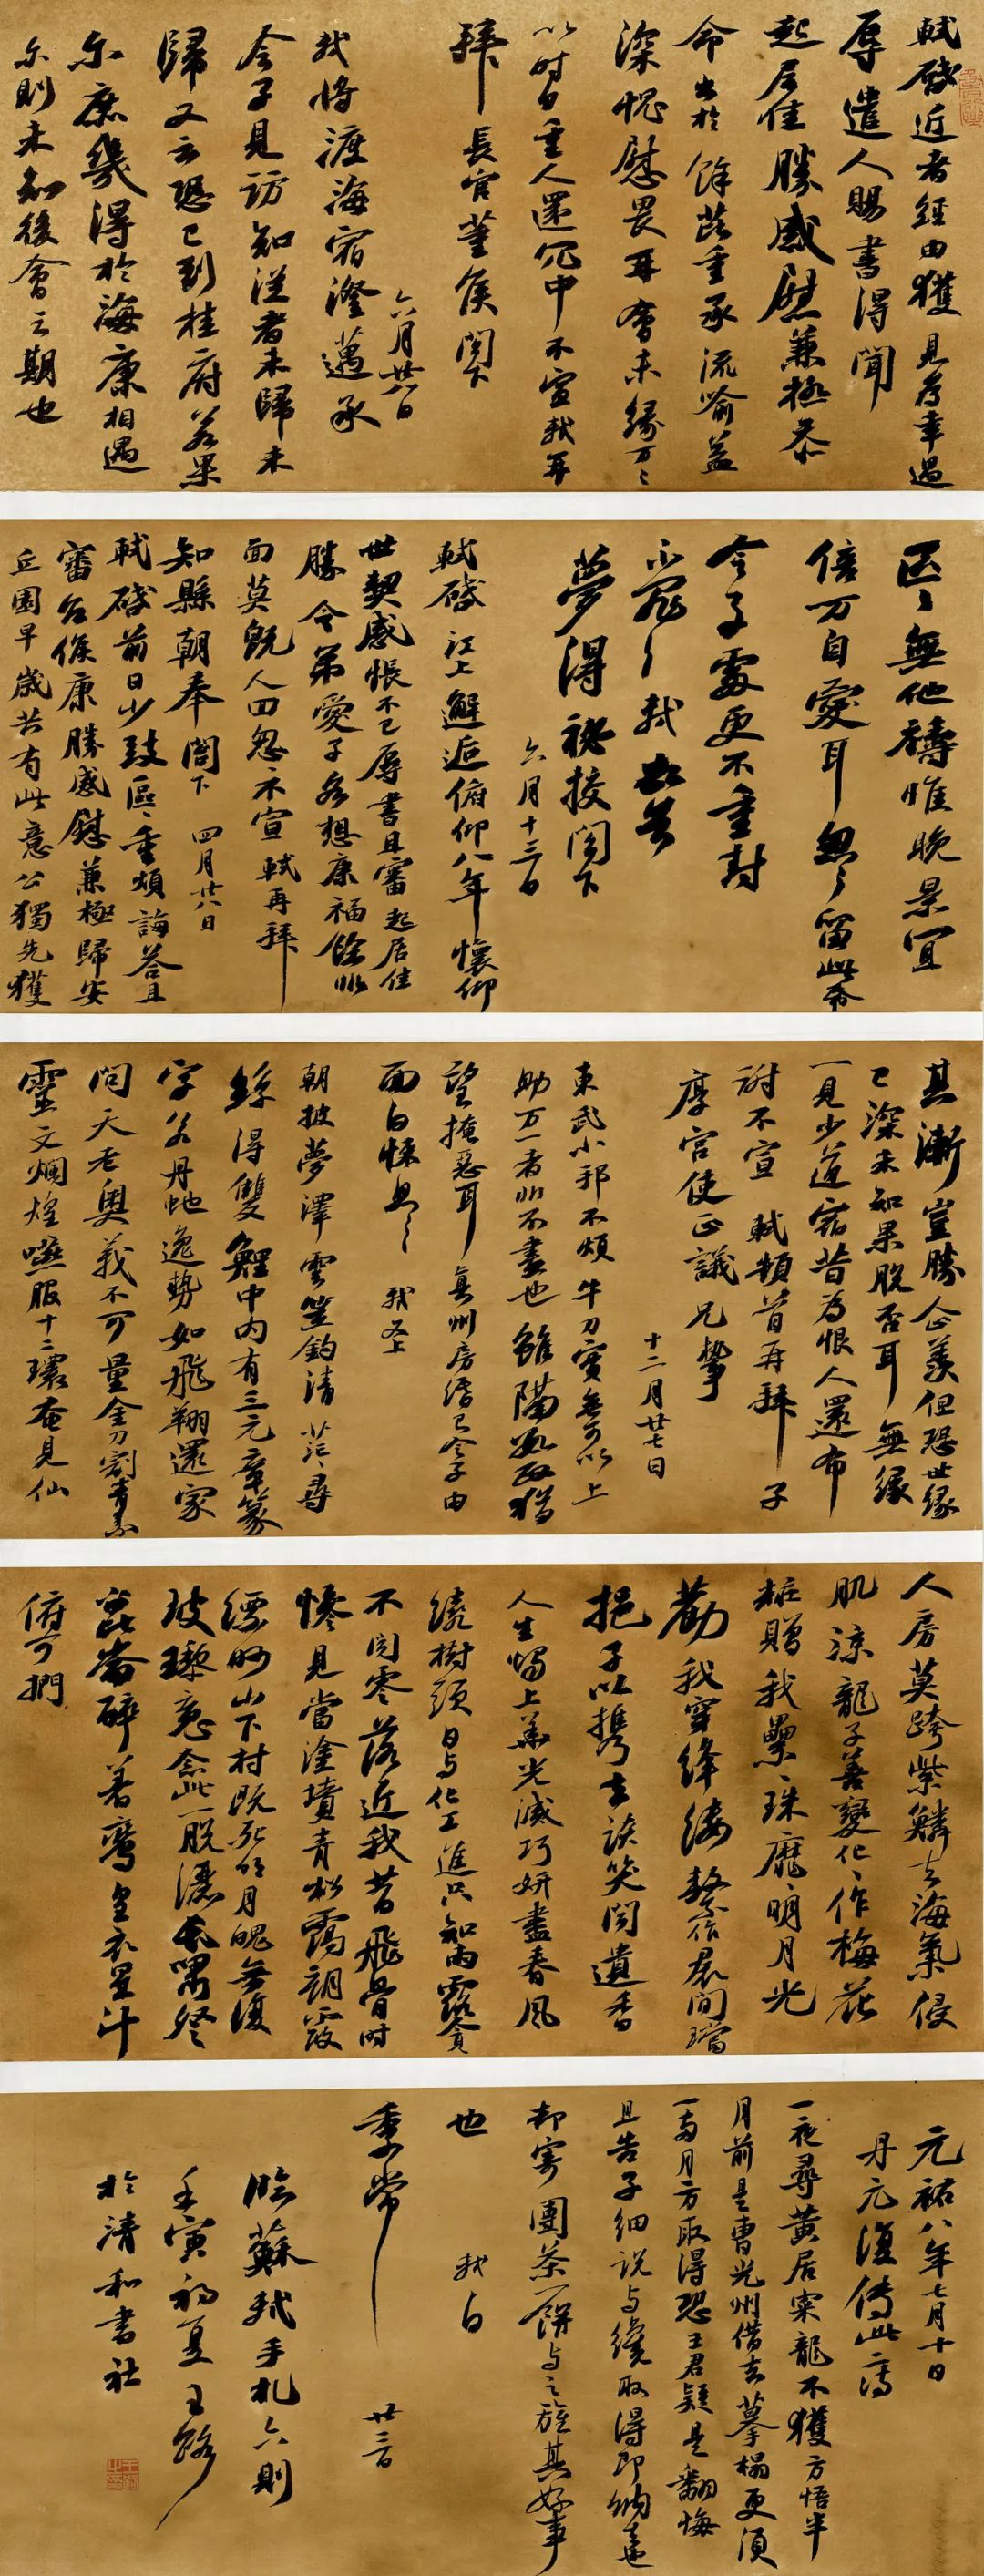 軾啓近者經由獲見為幸過
辱遣人賜書得聞
起居佳勝感慰兼極忝
命出於餘芘重承流喻益
深愧慰畏耳會未緣万々
以時自重人還冗中不宣軾再
拜長官董侯閣下
六月廿八日
軾將渡海宿澄邁承
令子見訪知從者未歸未
歸又云恐已到桂府若果
尔庶幾得於海康相遇
尔則未知後會之期也
區々無他禱惟晚景宜
倍万自愛耳忽々留此帋
令子處更不重封
不罪々軾頓首
夢得祕挍閣下
六月十三日
軾啓江上邂逅俯仰八年懷仰
世契感悵不已辱書且審起居佳
勝令弟愛子各想康福餘非
面莫既人回怱々不宣軾再拜
知縣朝奉閤下四月廿八日
軾啓前日少致區々重煩誨荅且
審台候康勝感慰兼極歸安
丘園早歲共有此意公獨先獲
其漸豈勝企羨但恐世緣
已深未知果脫否耳無緣
一見少道宿昔為恨人還布
謝不宣軾頓首再拜子
厚宮使正議兄執事
十二月廿七日
東武小邦不煩牛刀實無可以上
助万一者非不盡也雖隔數政猶
望掩惡耳真州房緡已令子由
面白悚息々軾又上
朝披夢澤雲笠釣清茫々尋
絲得雙鯉中內有三元章篆
字若丹虵逸勢如飛翔還家
問天老奧義不可量金刀割青素
靈文爛煌煌嚥服十二環奄見仙
人房莫跨紫鱗去海氣侵
肌涼龍子善變化々作梅花
粧贈我纍々珠靡々明月光
勸我穿絳縷繫作裠間璫
挹子以攜去談笑聞遺香
人生燭上華光滅巧妍盡春風
繞樹頭日與化工進只知雨露貪
不聞零落近我昔飛骨時
慘見當塗墳青松靄朝霞
縹眇山下村既死明月魄無復
玻瓈魂念此一脫灑長嘯登
崑崙醉著鸞皇衣星斗
俯可捫
元祐八年七月十日
丹元復傳此二詩
一夜尋黃居寀龍不獲方悟半
月前是曹光州借去摹榻更須
一兩月方取得恐王君疑是翻悔
且告子細說與纔取得即納去也
却寄團茶一餅與之旌其好事
也軾白
季常廿三日
臨蘇軾手札六則
壬寅初夏王路
於清和書社